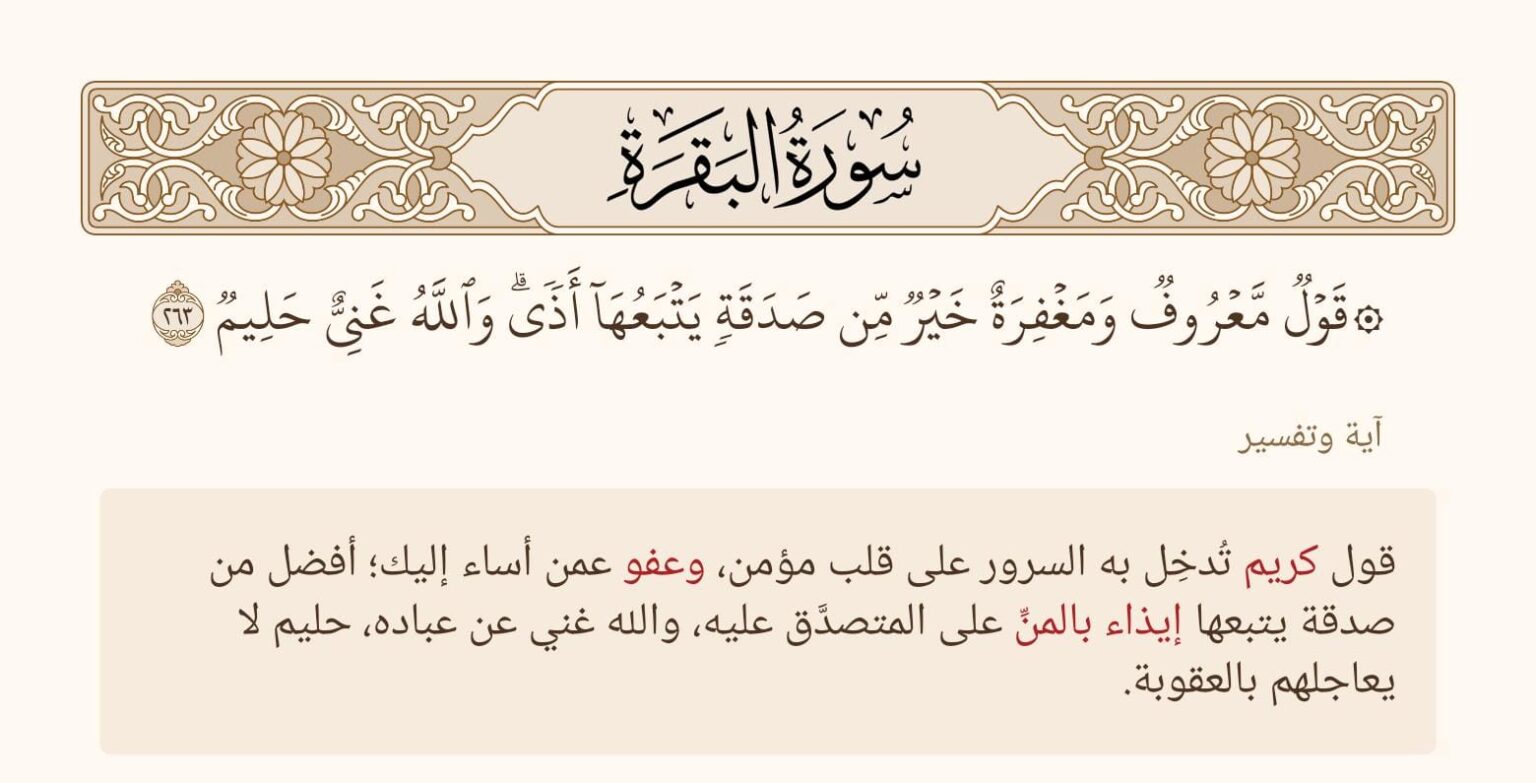 سُورَةُ البَقَرَةِ
۞ قَوۡلٞ مَّعۡرُوفٞ وَمَغۡفِرَةٌ خَيۡرٞ مِّن صَدَقَةٖ يَتۡبَعُهَآ أَذٗىۗ وَٱللَّهُ غَنِيٌّ حَلِيمٞ ٢٦٣
آية وتفسير
قول كريم تُدخِل به السرور على قلب مؤمن، وعفو عمن أساء إليك؛ أفضل من
صدقة يتبعها إيذاء بالمنِّ على المتصدَّق عليه، والله غني عن عباده، حليم لا
يعاجلهم بالعقوبة.